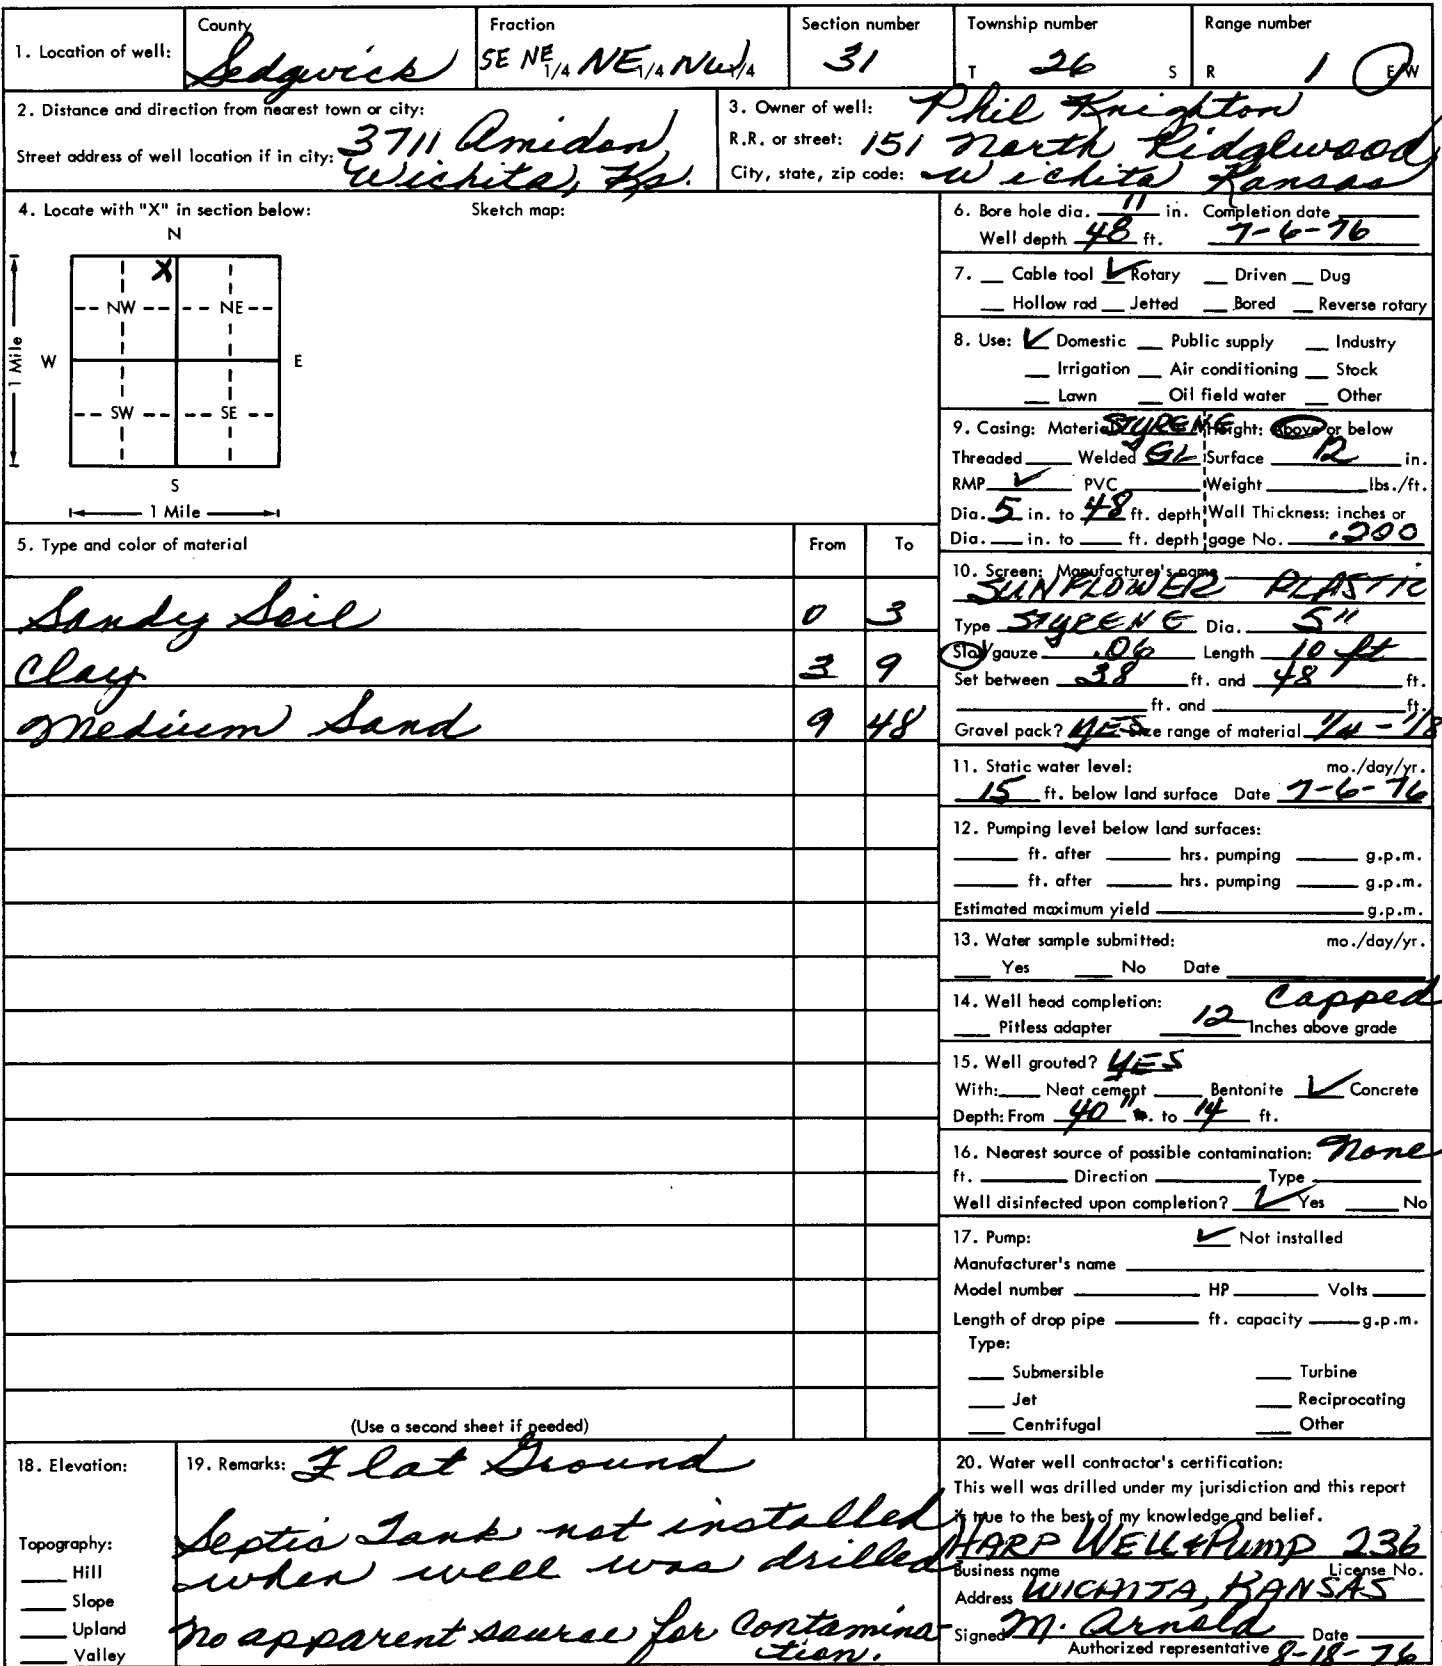 1. Location of well:
County
Sedgwick
Fraction
SE NE 1/4 NE 1/4 NW 1/4
Section number
31
Township number
T 26 S
Range number
R 1 E/W
2. Distance and direction from nearest town or city:
Street address of well location if in city: 3711 Amidon,
Wichita, Ks.
3. Owner of well: Phil Knighton
R.R. or street: 151 North Ridglewood
City, state, zip code: Wichita Kansas
4. Locate with "X" in section below:
Sketch map:
N
X
NW
NE
W
E
SW
SE
S
1 Mile
1 Mile
5. Type and color of material
From
To
Sandy Soil 0 3
Clay 3 9
Medium Sand 9 48
(Use a second sheet if needed)
6. Bore hole dia. 11 in. Completion date
Well depth 48 ft. 7-6-76
7. Cable tool ✓ Rotary Driven Dug
Hollow rod Jetted Bored Reverse rotary
8. Use: ✓ Domestic Public supply Industry
Irrigation Air conditioning Stock
Lawn Oil field water Other
9. Casing: Material STYRENE Height: Above or below
Threaded Welded GL Surface 12 in.
RMP ✓ PVC Weight lbs./ft.
Dia. 5 in. to 48 ft. depth Wall Thickness: inches or
Dia. in. to ft. depth gage No. .200
10. Screen: Manufacturer's name
SUNFLOWER PLASTIC
Type STYRENE Dia. 5"
Slot/gauze .06 Length 10 ft
Set between 38 ft. and 48 ft.
ft. and ft.
Gravel pack? YES Size range of material 1/4 - 1/8
11. Static water level: mo./day/yr.
15 ft. below land surface Date 7-6-76
12. Pumping level below land surfaces:
ft. after hrs. pumping g.p.m.
ft. after hrs. pumping g.p.m.
Estimated maximum yield g.p.m.
13. Water sample submitted: mo./day/yr.
Yes No Date
14. Well head completion: Capped
Pitless adapter 12 Inches above grade
15. Well grouted? YES
With: Neat cement Bentonite ✓ Concrete
Depth: From 40" to 14 ft.
16. Nearest source of possible contamination: None
ft. Direction Type
Well disinfected upon completion? ✓ Yes No
17. Pump: ✓ Not installed
Manufacturer's name
Model number HP Volts
Length of drop pipe ft. capacity g.p.m.
Type:
Submersible Turbine
Jet Reciprocating
Centrifugal Other
18. Elevation:
Topography:
Hill
Slope
Upland
Valley
19. Remarks: Flat Ground
Septic Tank not installed
when well was drilled
No apparent source for contamina-
tion.
20. Water well contractor's certification:
This well was drilled under my jurisdiction and this report
is true to the best of my knowledge and belief.
HARP WELL & PUMP 236
Business name License No.
Address WICHITA, KANSAS
Signed M. Arnold Date
Authorized representative 8-18-76